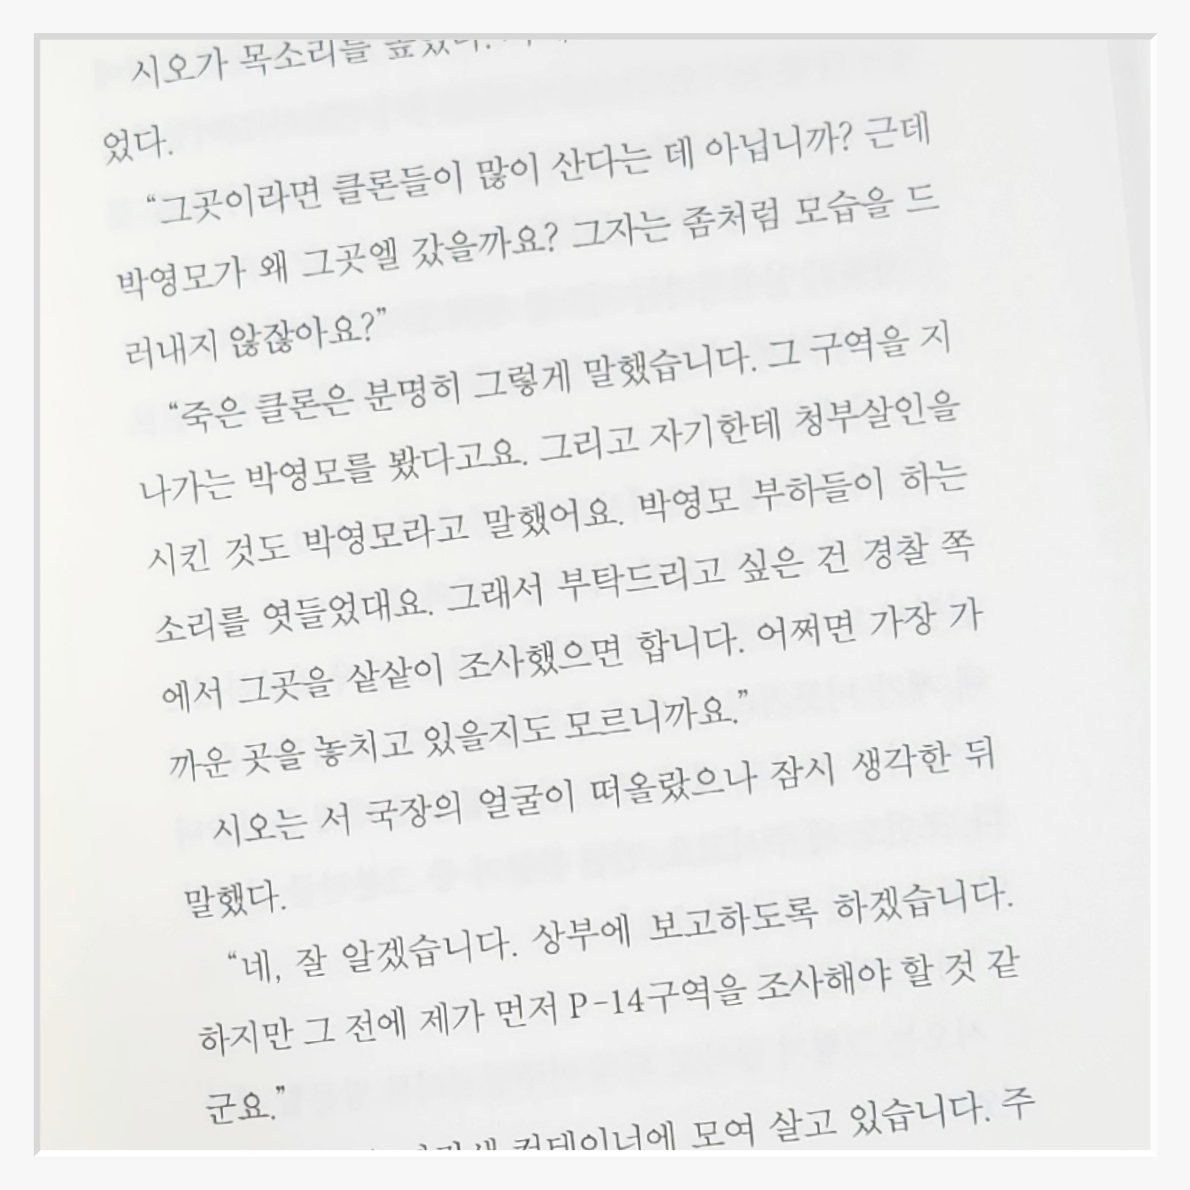 시오가 목소리를
었다.
“그곳이라면 클론들이 많이 산다는 데 아닙니까? 근데
박영모가 왜 그곳엘 갔을까요? 그자는 좀처럼 모습을 드
러내지 않잖아요?”
“죽은 클론은 분명히 그렇게 말했습니다. 그 구역을 지
나가는 박영모를 봤다고요. 그리고 자기한테 청부살인을
시킨 것도 박영모라고 말했어요. 박영모 부하들이 하는
소리를 엿들었대요. 그래서 부탁드리고 싶은 건 경찰 쪽
에서 그곳을 샅샅이 조사했으면 합니다. 어쩌면 가장 가
까운 곳을 놓치고 있을지도 모르니까요.”
시오는 서 국장의 얼굴이 떠올랐으나 잠시 생각한 뒤
말했다.
“네, 잘 알겠습니다. 상부에 보고하도록 하겠습니다.
하지만 그 전에 제가 먼저 P-14구역을 조사해야 할 것 같
군요.”
컨테이너에 모여 살고 있습니다. 주